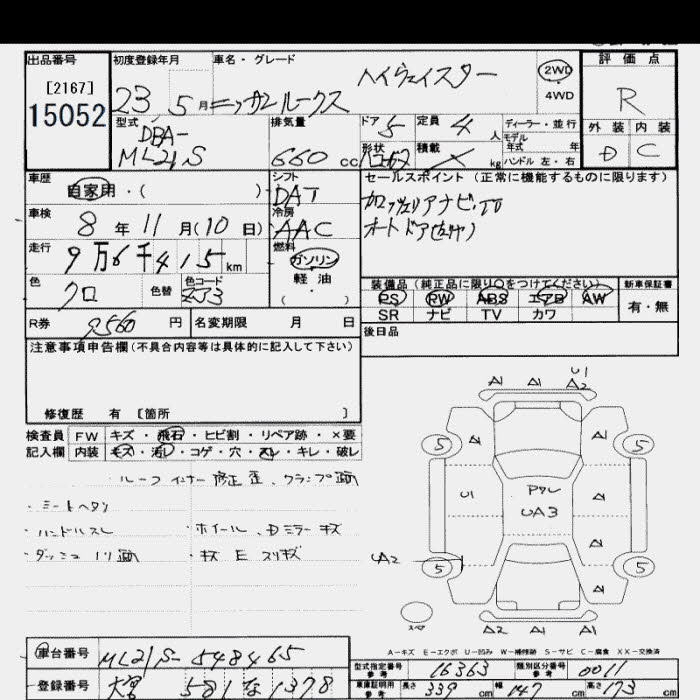 出品番号
[2167]
15052
初度登録年月
車名・グレード
ハイウェイスター
23 5月 ニッサンルークス
2WD
4WD
評価点
R
外装 内装
D C
型式
DBA-
ML21S
排気量
660 cc
ドア 5
定員 4 人
形状
積載
kg
ディーラー・並行
モデル
年式 年
ハンドル 左・右
車歴
自家用・( )
シフト
DAT
車検
8年 11月(10日)
冷房
AAC
走行
9万6千415km
燃料
ガソリン
軽油
( )
色
クロ
色替
色コード
ZJ3
R券
9560円
名変期限 月 日
セールスポイント(正常に機能するものに限ります)
カロッツェリアナビ・TV
オートドア(左ヤノ)
装備品(純正品に限り○をつけてください)
PS PW ABS エアB AW
SR ナビ TV カワ
新車保証書
有・無
後日品
注意事項申告欄(不具合内容等は具体的に記入して下さい)
修復歴 有 [箇所 ]
検査員
記入欄
FW キズ・飛石・ヒビ割・リペア跡・×要
内装 キズ・汚レ・コゲ・穴・スレ・キレ・破レ
ルーフインナー修正歪、クランプ跡
・シートヘタリ
・ハンドルスレ
・ダッシュノリ跡
・ホイール、Dミラーキズ
・キズEスリキズ
A1 A1 U1
A2
5 A1 A1 5
U1 Pクレ
UA3
A1
A1
UA2 5 A1 5
スペア
A2 A1 U1
A-キズ E-エクボ U-凹み W-補修跡 S-サビ C-腐食 XX-交換済
車台番号
ML21S-548465
登録番号
581 な 1378
型式指定番号
参考
16363
類別区分番号
参考
0011
車庫証明用
参考
長さ 339 cm
幅 147 cm
高さ 173 cm